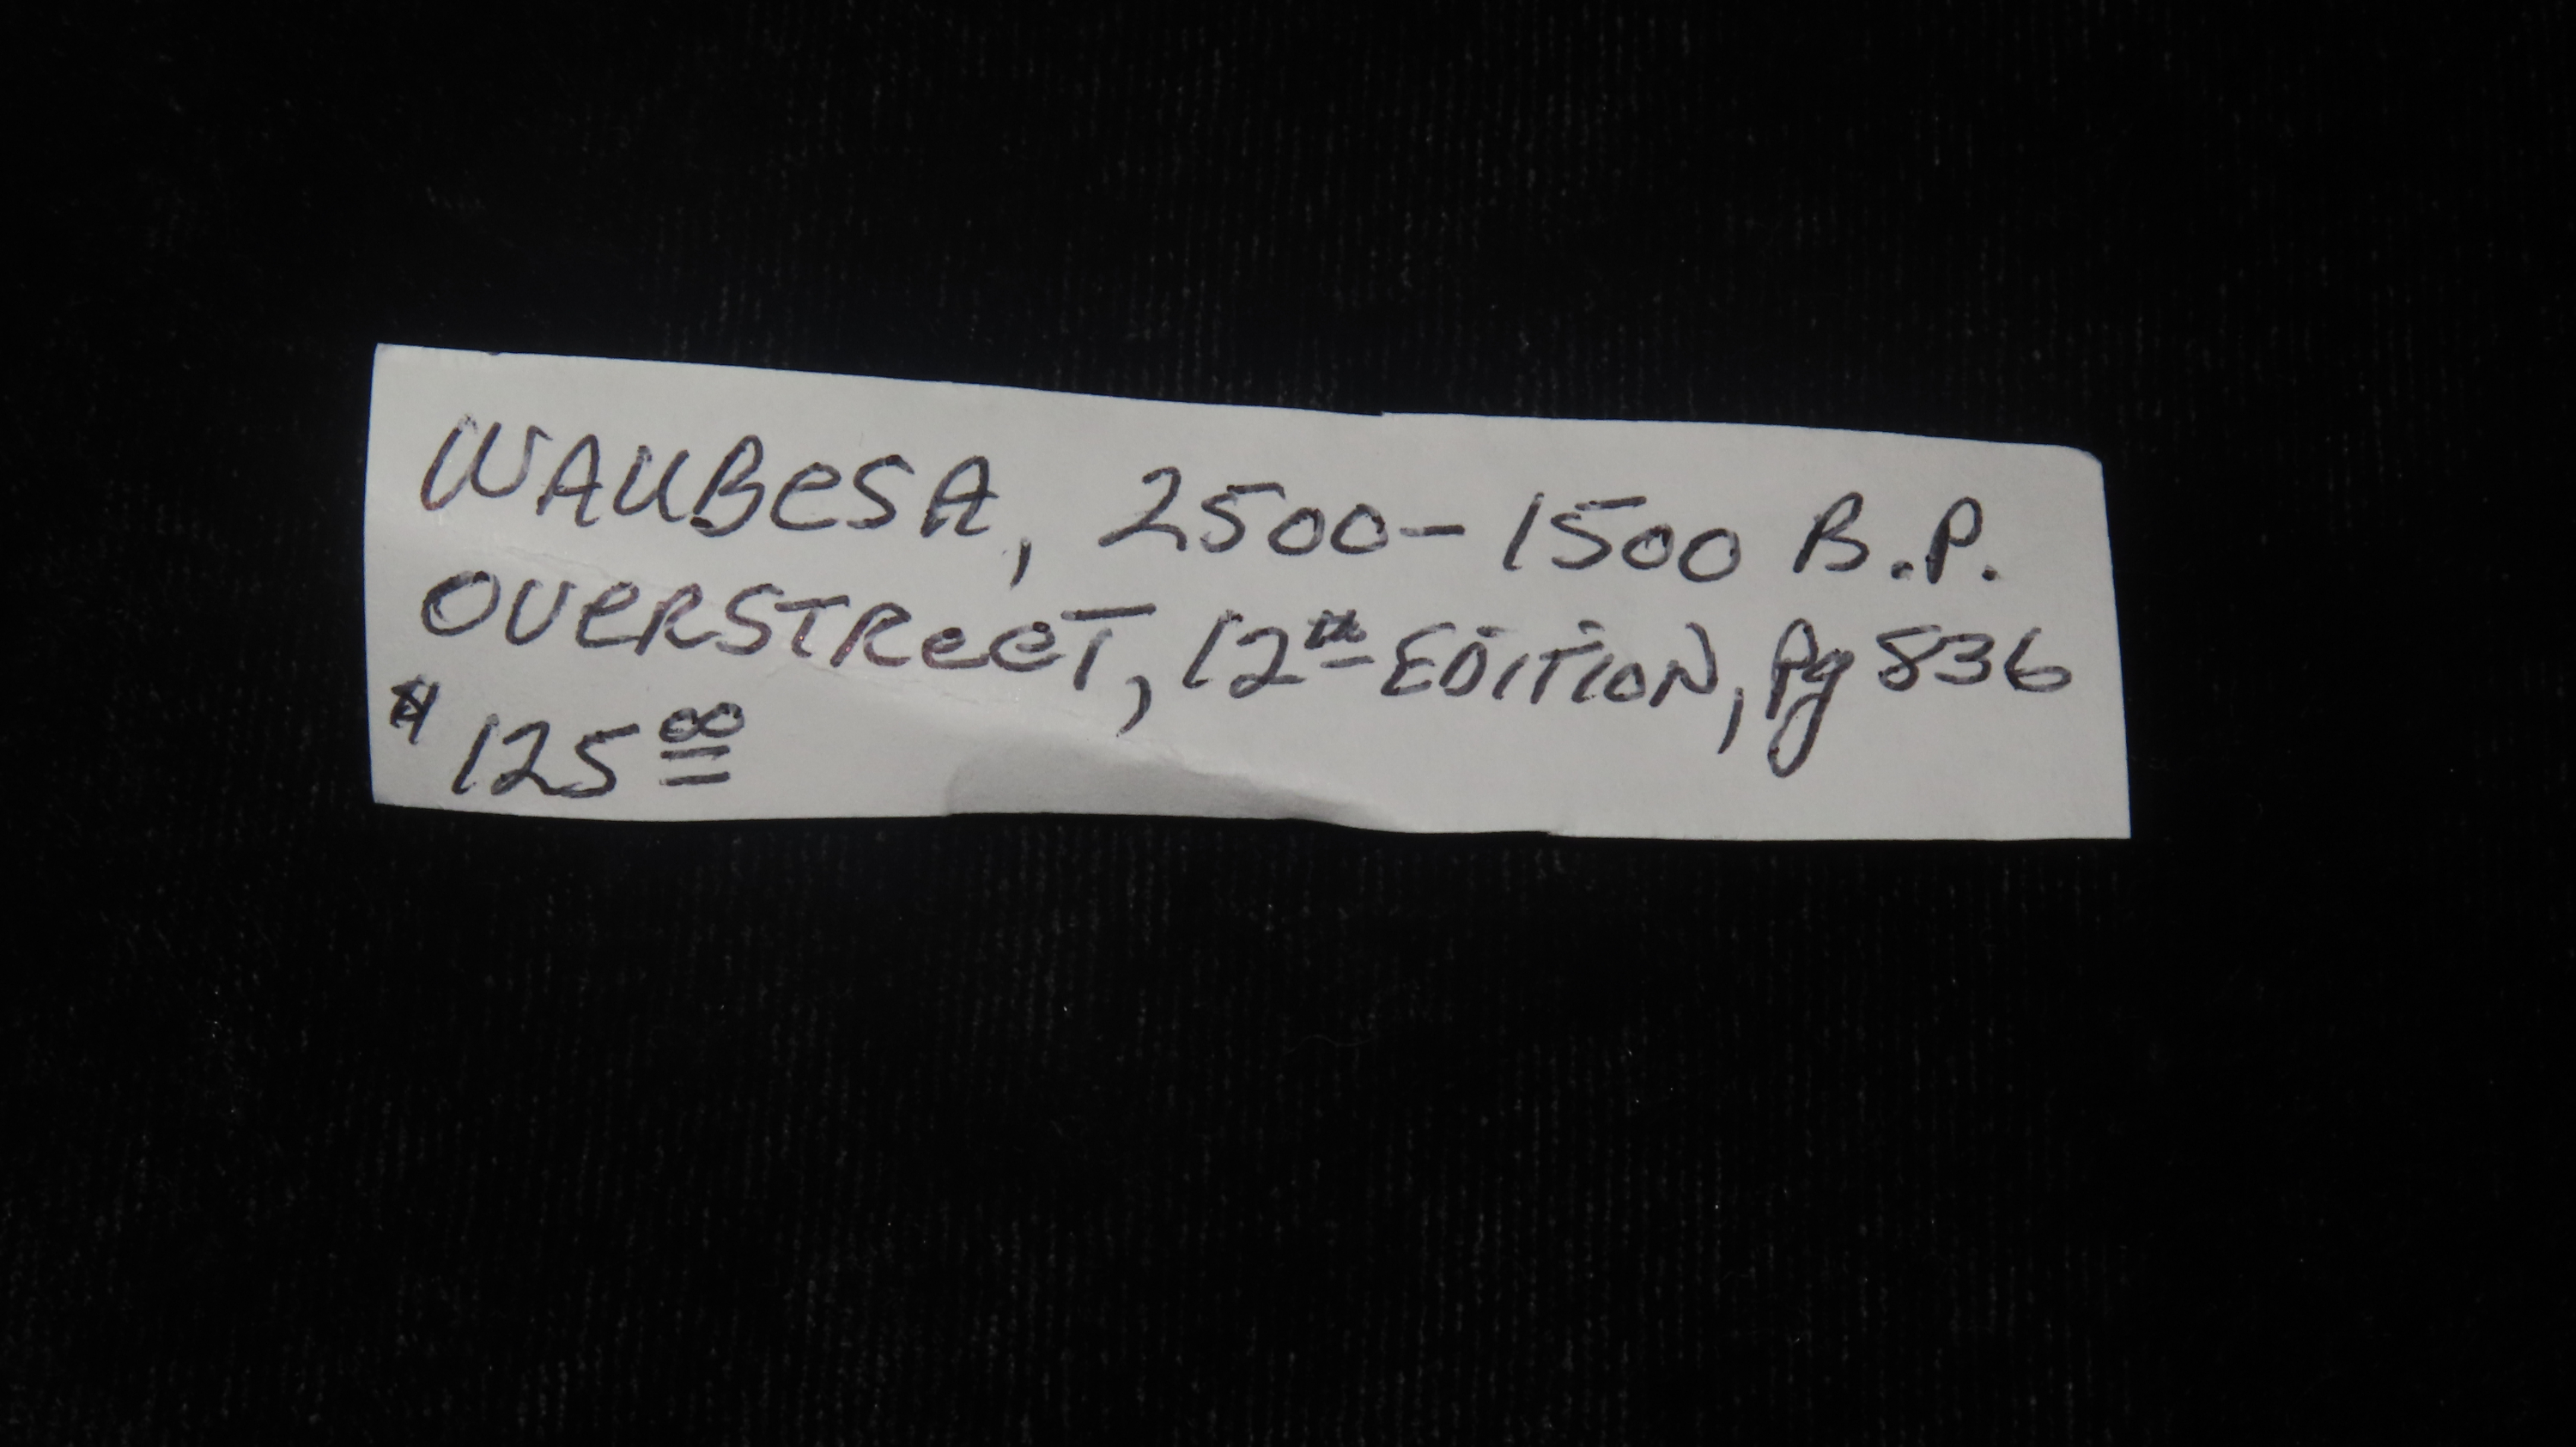 WAUBeSA, 2500-1500 B.P.
OVeRSTReeT, 12th EDiTiON, Pg 836
$125 00